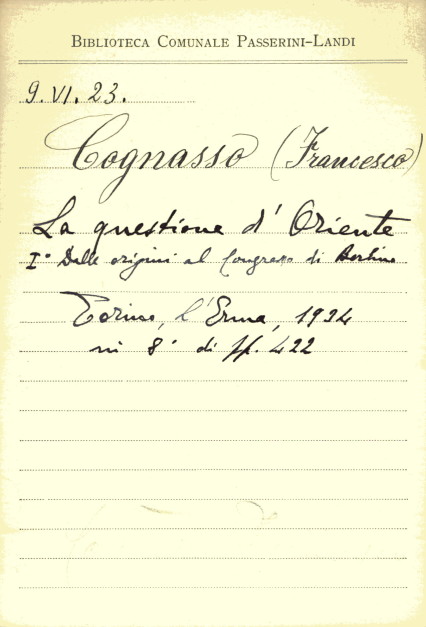 BIBLIOTECA COMUNALE PASSERINI-LANDI
9. VI. 23.
Cognasso (Francesco)
La questione d' Oriente
I° Dalle origini al Congresso di Berlino
Torino, l'Erma, 1934
in 8° di pp. 422